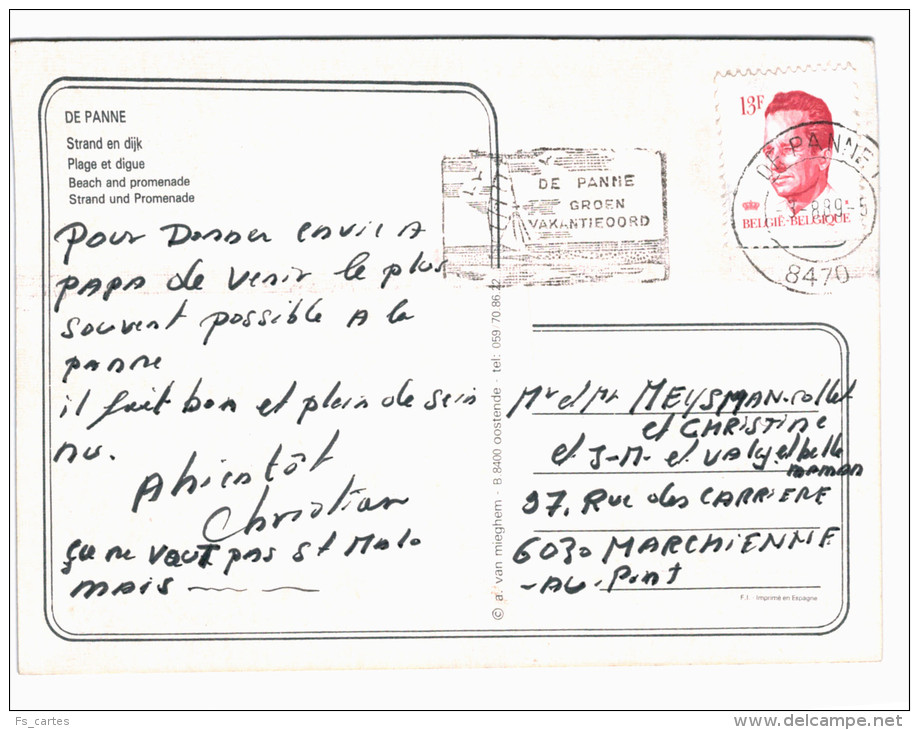 DE PANNE
Strand en dijk
Plage et digue
Beach and promenade
Strand und Promenade
Pour Donner envie A
papa de venir le plus
souvent possible A la
panne
il fait bon et plein de sein
nu.
Abientôt
Christian
ça ne vaut pas St Malo
mais
© a. van mieghem - B 8400 oostende - tel: 059 70.86.22
DE PANNE
GROEN
VAKANTIEOORD
13F
BELGIË-BELGIQUE
DE PANNE 1
8470
Mr et Mr MEYSMAN-collet
et CHRISTINE
et J-M. et VALY et belle
maman
97. Rue des CARRIERE
6030 MARCHIENNE
-AU-Pont
F.I. - Imprimé en Espagne
Fs_cartes
www.delcampe.net